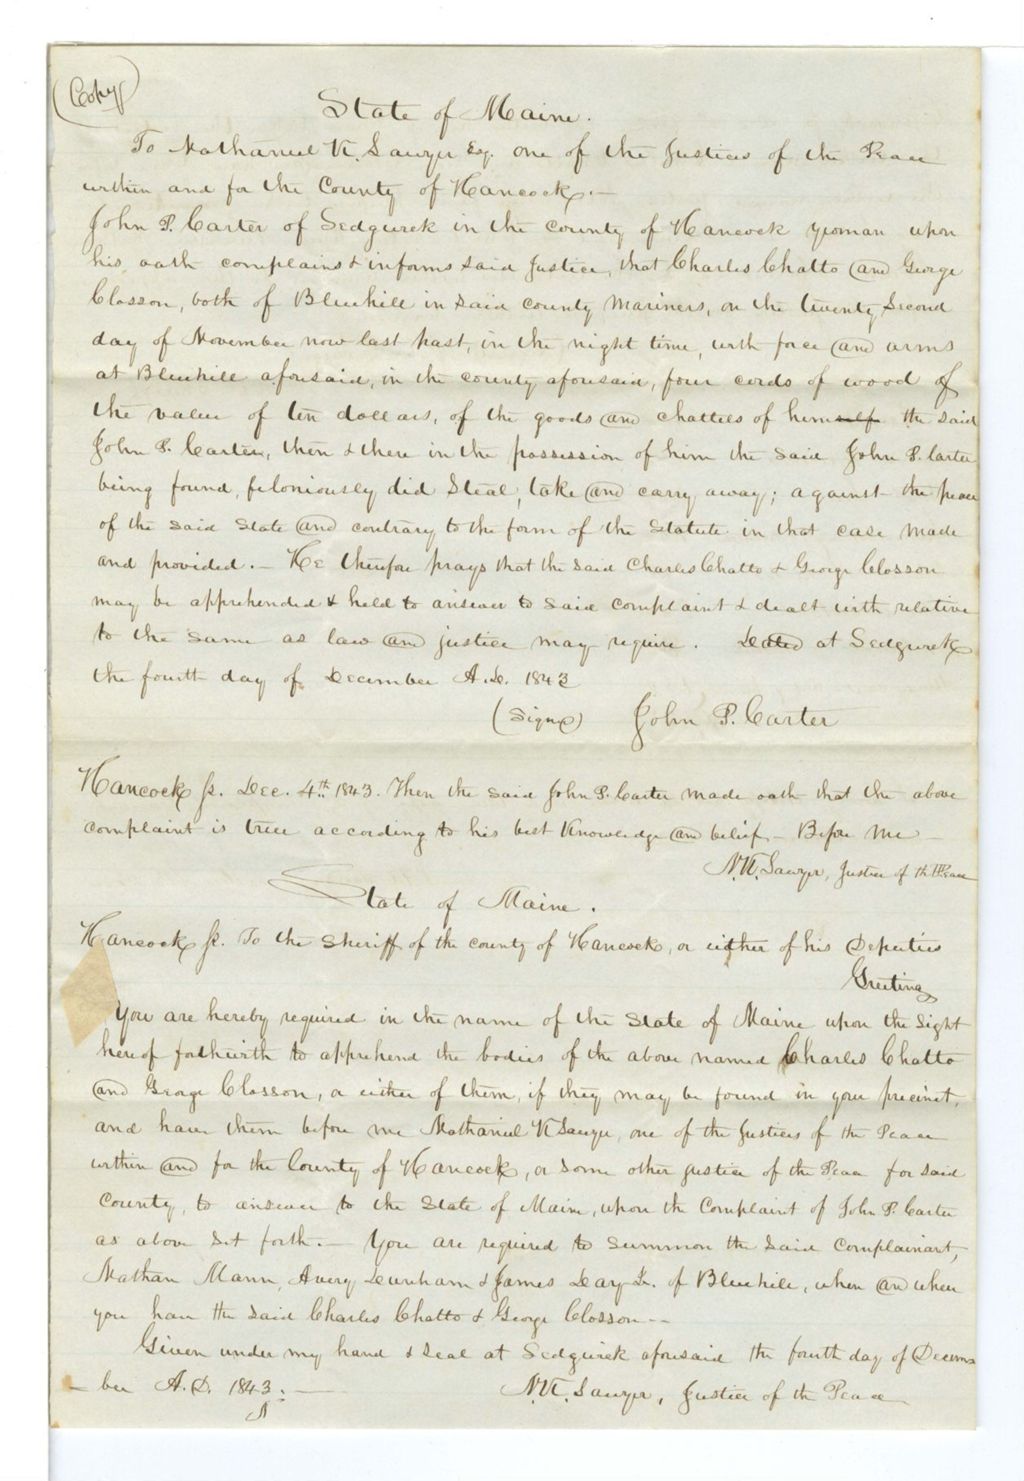 (Copy)
State of Maine.
To Nathaniel K. Sawyer Esq. one of the Justices of the Peace
within and for the County of Hancock.—
John P. Carter of Sedgwick in the county of Hancock yeoman upon
his oath complains & informs said Justice, that Charles Chatto and George
Closson, both of Bluehill in said county Mariners, on the twenty second
day of November now last past, in the night time, with force and arms
at Bluehill aforesaid, in the county aforesaid, four cords of wood of
the value of ten dollars, of the goods and chattels of himself the said
John P. Carter, then & there in the possession of him the said John P. Carter
being found, feloniously did steal, take and carry away; against the peace
of the said State and contrary to the form of the Statute in that case made
and provided.— He therefore prays that the said Charles Chatto & George Closson
may be apprehended & held to answer to said complaint & dealt with relative
to the same as law and justice may require. Dated at Sedgwick
the fourth day of December A.D. 1843
(Signed) John P. Carter
Hancock Ss. Dec. 4th. 1843. Then the said John P. Carter made oath that the above
complaint is true according to his best Knowledge and belief— Before Me—
N.K. Sawyer, Justice of the Peace
State of Maine.
Hancock Ss. To the Sheriff of the county of Hancock, or either of his Deputies
Greeting
You are hereby required in the name of the State of Maine upon the sight
hereof forthwith to apprehend the bodies of the above named Charles Chatto
and George Closson, or either of them, if they may be found in your precinct,
and have them before me Nathaniel K Sawyer, one of the Justices of the Peace
within and for the County of Hancock, or some other justice of the Peace for said
County, to answer to the State of Maine, upon the Complaint of John P. Carter
as above set forth.— You are required to summon the said Complainant,
Nathan Mann, Avery Dunham & James Day Jr. of Bluehill, when and where
you have the said Charles Chatto & George Closson—
Given under my hand & seal at Sedgwick aforesaid the fourth day of Decem
-ber A.D. 1843.—
N.K. Sawyer, Justice of the Peace